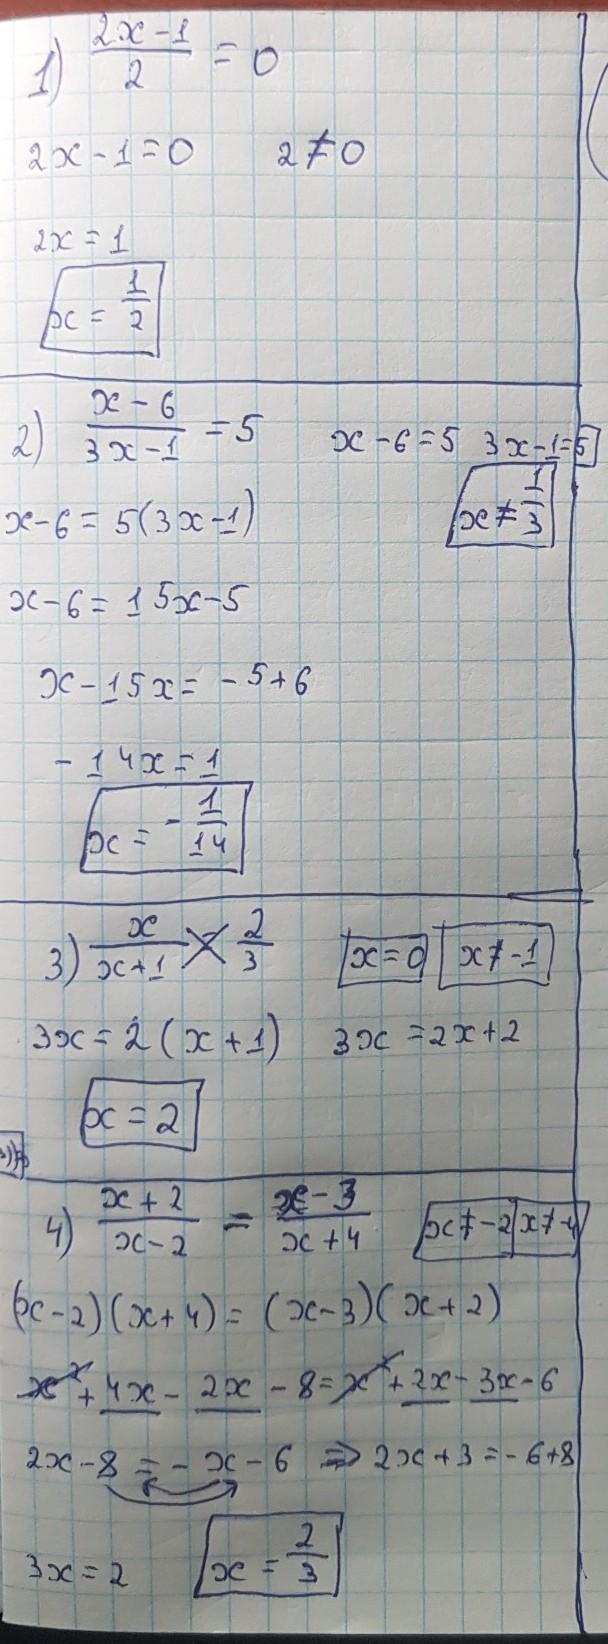 1) (2x-1)/2 = 0
2x-1=0 2≠0
2x=1
x=1/2
2) (x-6)/(3x-1) = 5 x-6=5 3x-1=5
x≠1/3
x-6=5(3x-1)
x-6=15x-5
x-15x=-5+6
-14x=1
x=-1/14
3) x/(x+1) = 2/3 x=0 x≠-1
3x=2(x+1) 3x=2x+2
x=2
4) (x+2)/(x-2) = (x-3)/(x+4) x≠-2 x≠-4
(x-2)(x+4)=(x-3)(x+2)
x²+4x-2x-8=x²+2x-3x-6
2x-8=-x-6 ⇒ 2x+3=-6+8
3x=2 x=2/3